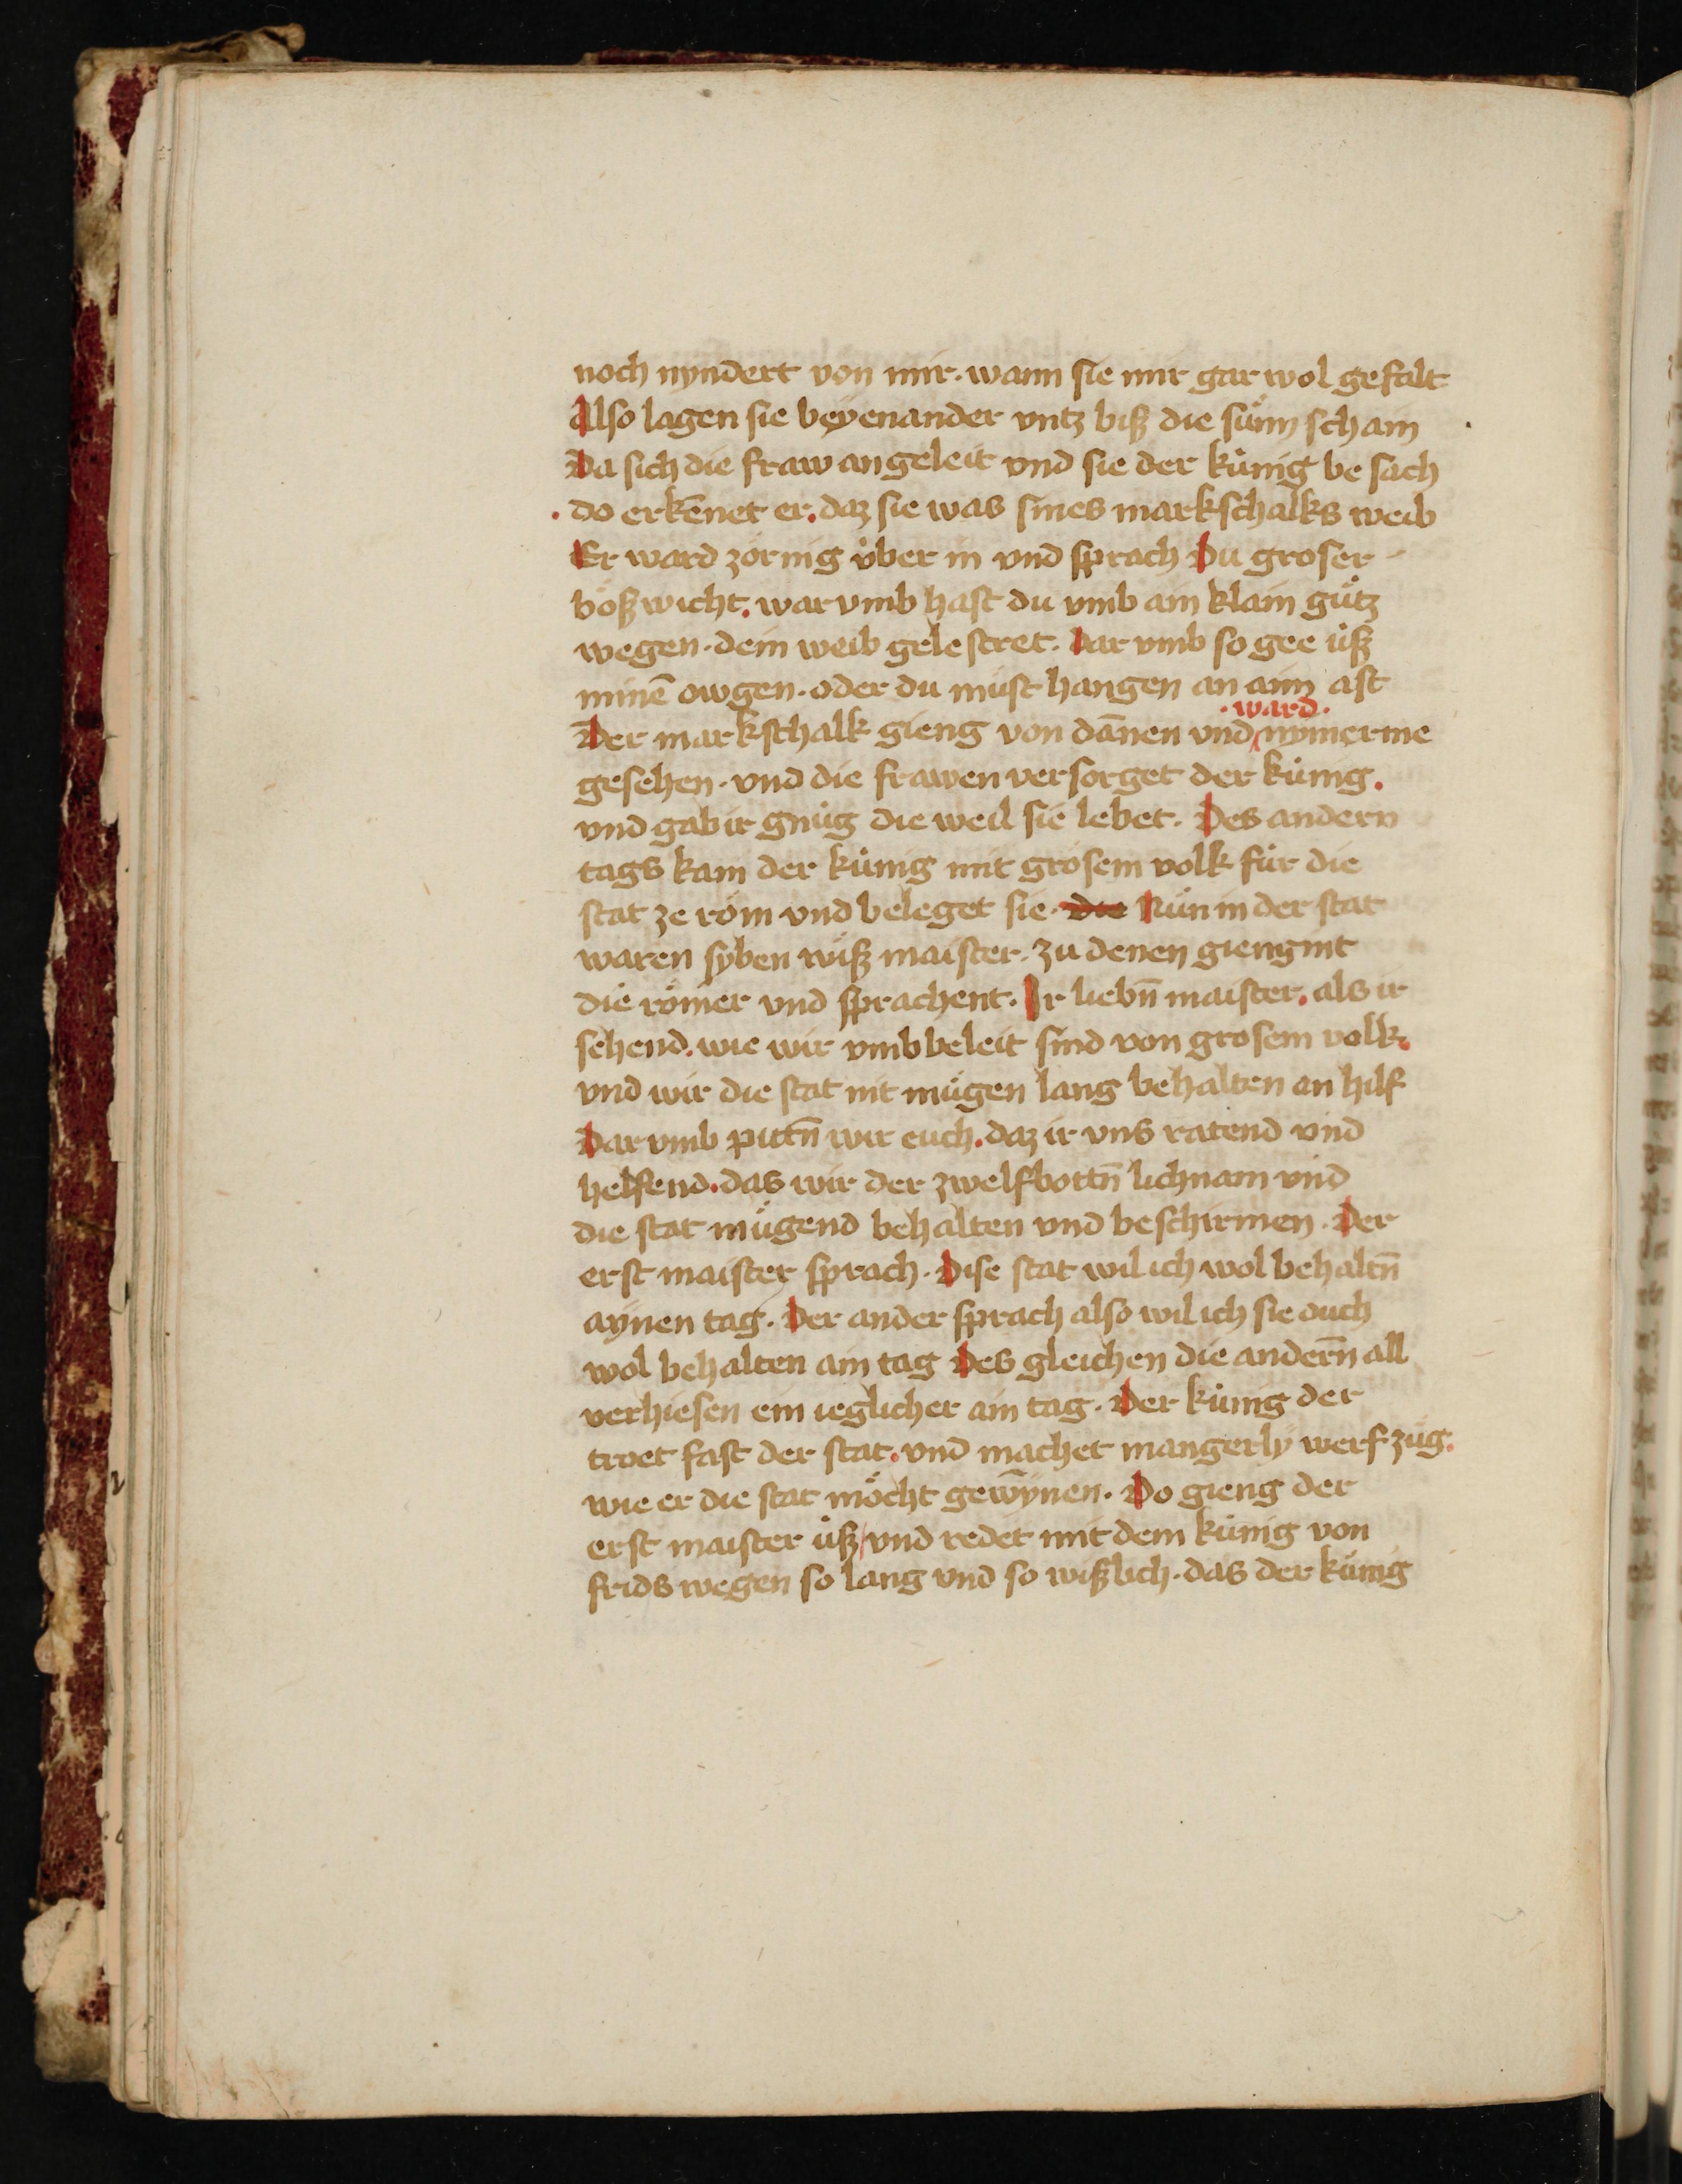 noch nyndert von mir · wann sie mir gar wol gefalt
Also lagen sie beyenander vntz biß die sünn scham
Da sich die fraw an geleit vnd sie der künig be sach
· do erkēnet er. daz sie was sines markschalks weib
Er ward zörnig über in vnd sprach Du groser
bößwicht. war vmb hast du vmb ain klain gütz
wegen · dein weib gelestret. Dar vmb so gee üß
minē owgen · oder du must hangen an aim ast
· ward ·
Der markschalk gieng von dānen vnd nymerme
gesehen · vnd die frawen versorget der künig.
vnd gab ir gnüg die weil sie lebet. Des andern
tags kam der künig mit grosem volk für die
stat ze röm vnd beleget sie · die Nün in der stat
waren syben wiß maister · zu denen giengint
die römer vnd sprachent. Ir liebn̄ maister. als ir
sehend. wie wir vmbbeleit sind von grosem volk.
vnd wir die stat nit mügen lang behalten an hilf
Dar vmb pittn̄ wir euch. daz ir vns ratend vnd
helfend. das wir der zwelfbottn̄ lichnam vnd
die stat mügend behalten vnd beschirmen. Der
erst maister sprach. Dise stat wil ich wol behaltn̄
aynen tag. Der ander sprach also wil ich sie ouch
wol behalten ain tag Des gleichen die andern̄ all
verhiesen ein ieglicher ain tag. Der künig der
troet fast der stat. vnd machet mangerly werfzüg.
wie er die stat möcht gew̄ynen. Do gieng der
erst maister üß vnd redet mit dem künig von
frids wegen so lang vnd so wißlich. das der künig